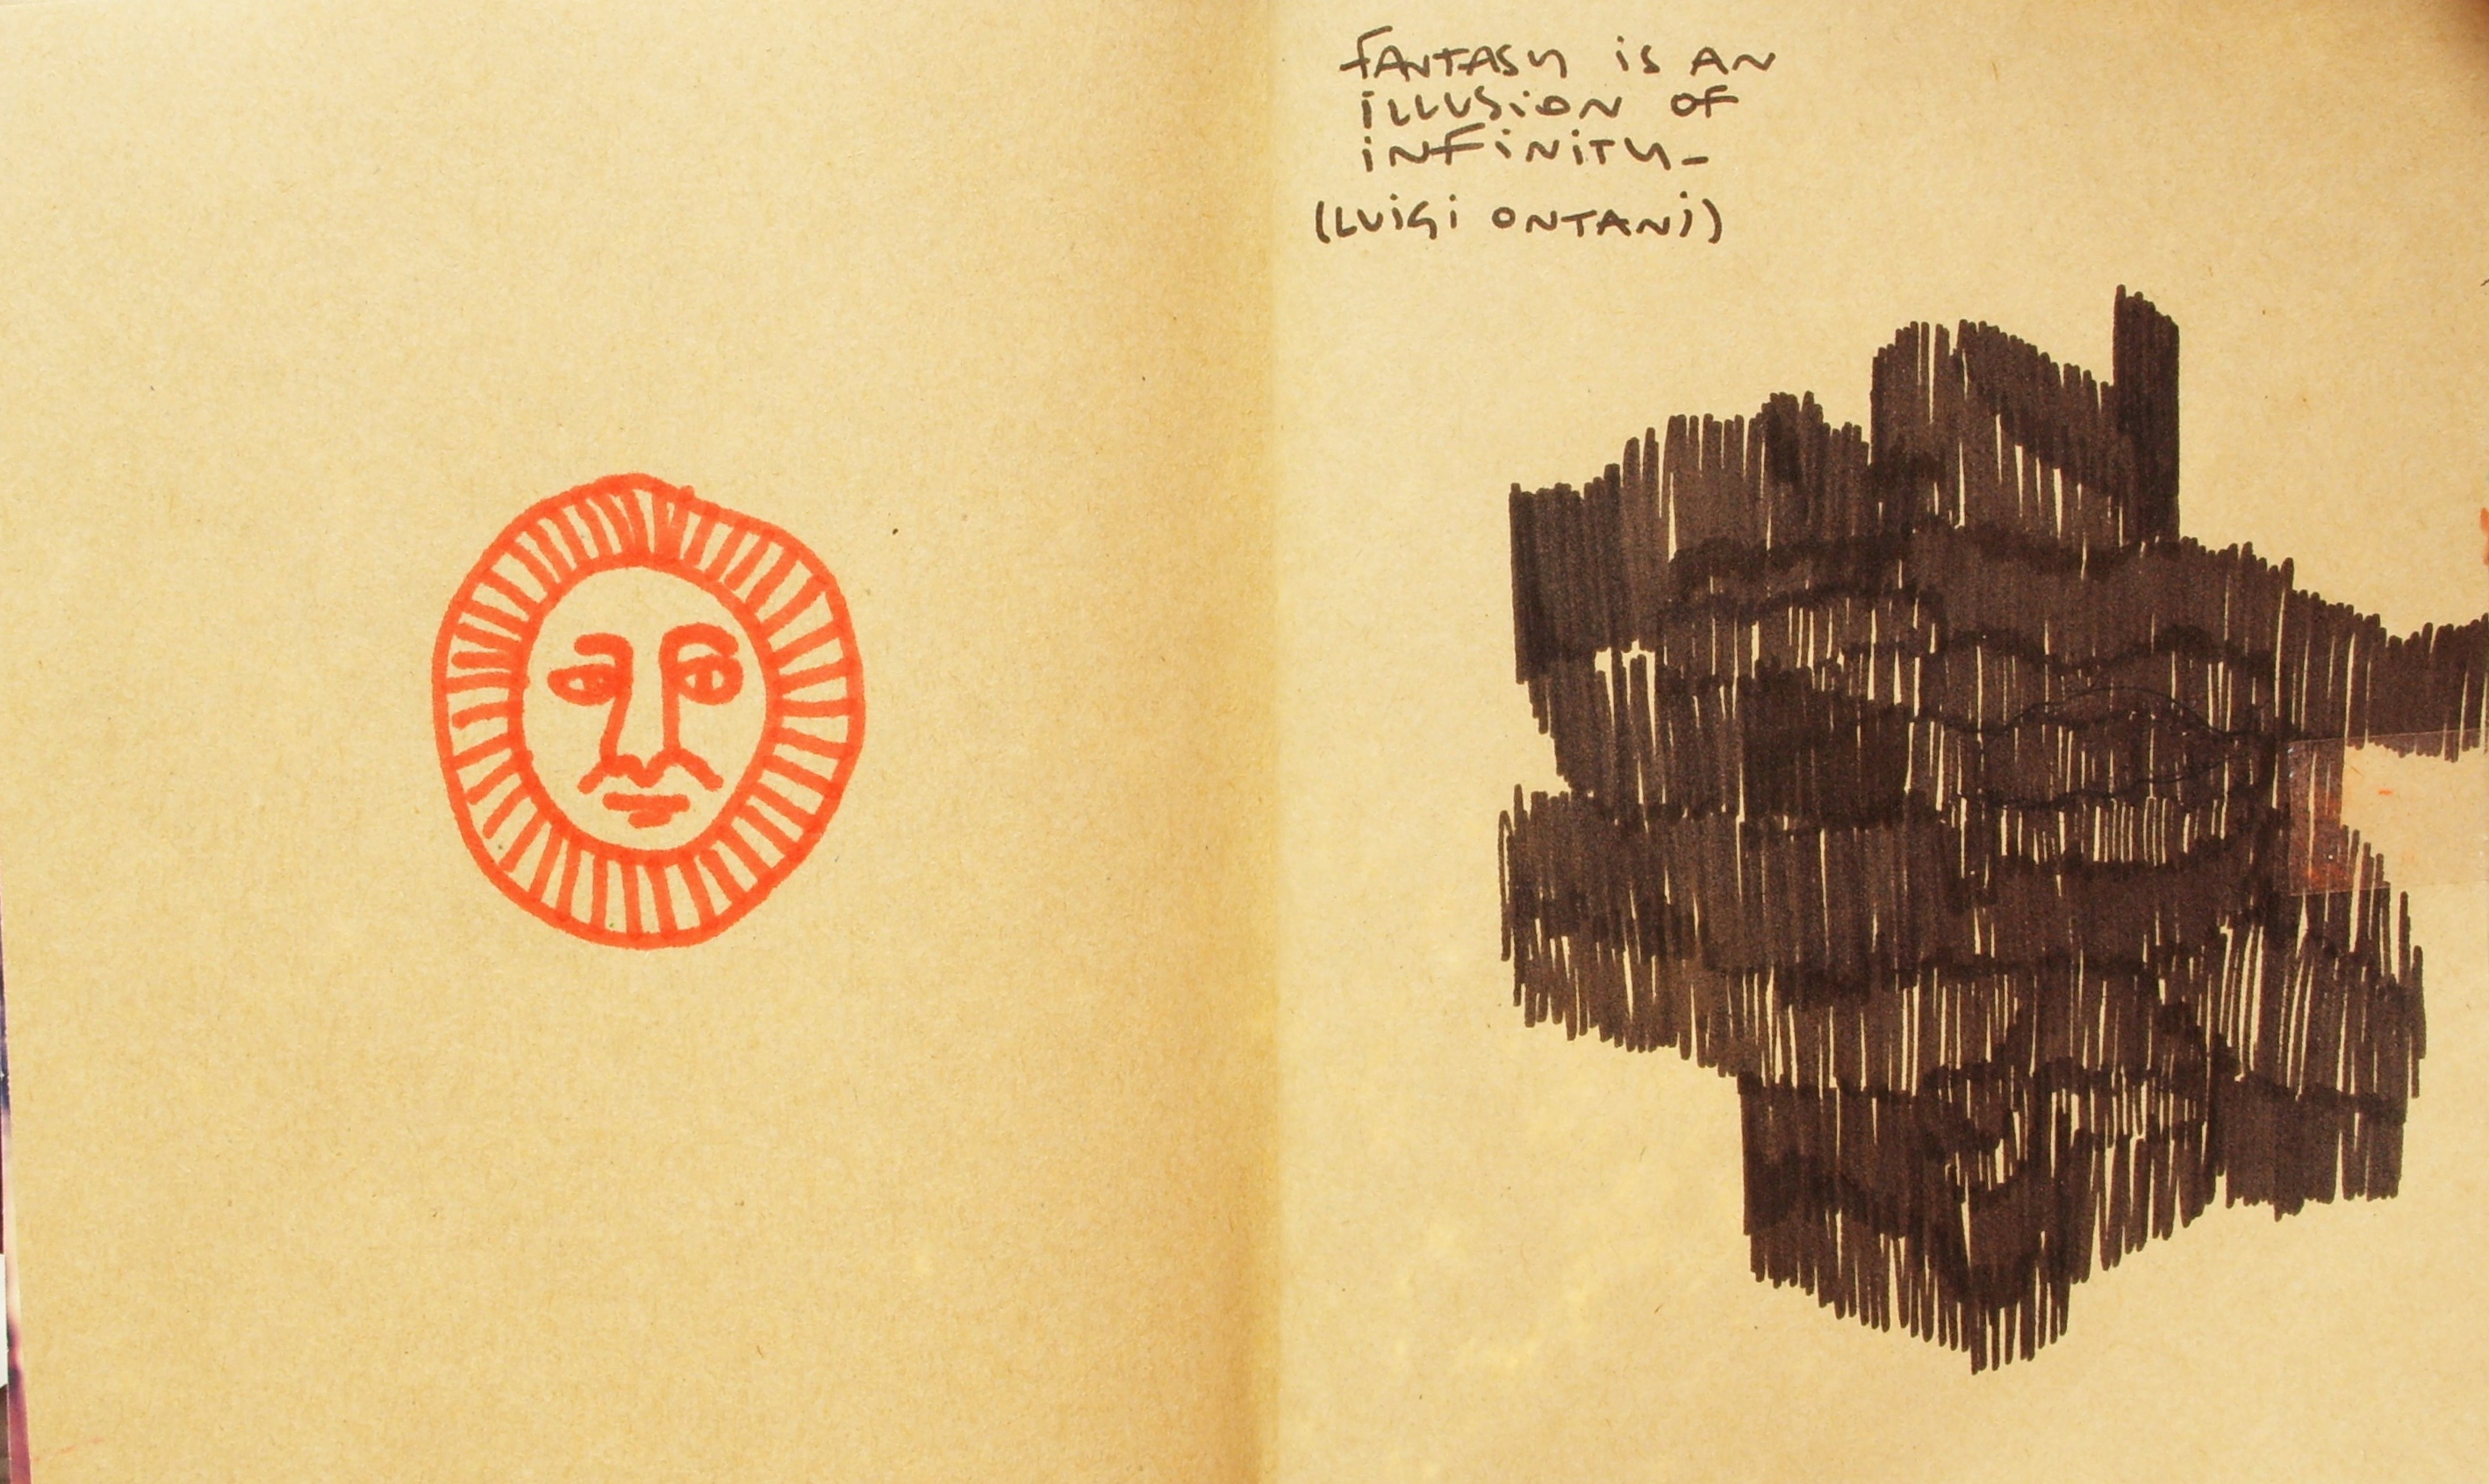 FANTASY is AN
iLLUSiON OF
iNFiNiTY-
(LUiGi ONTANi)